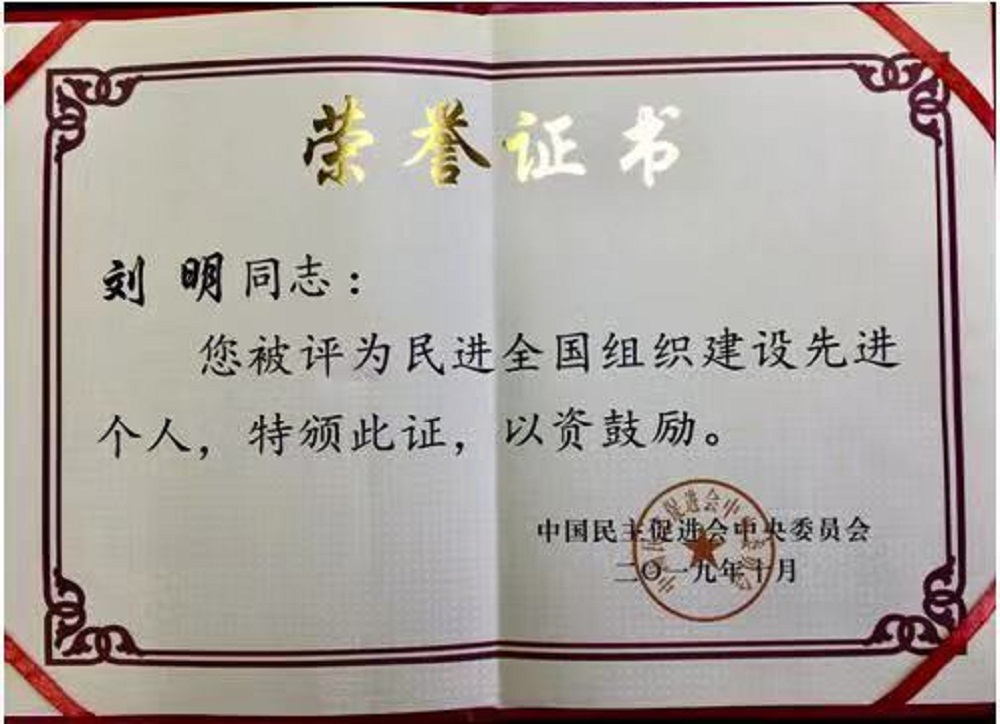 荣誉证书
刘 明同志：
您被评为民进全国组织建设先进
个人，特颁此证，以资鼓励。
中国民主促进会中央委员会
二〇一九年十月